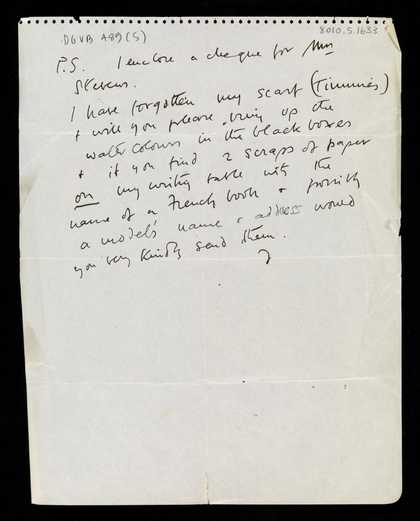 DGVB A89 (5)
8010.5.1633
P.S. I enclose a cheque for Mrs
Stevens.
I have forgotten my scarf (Timmies)
+ will you please bring up the
water colours in the black boxes
+ if you find 2 scraps of paper
on my writing table with the
name of a French book + possibly
a model's name + address would
you very kindly send them.